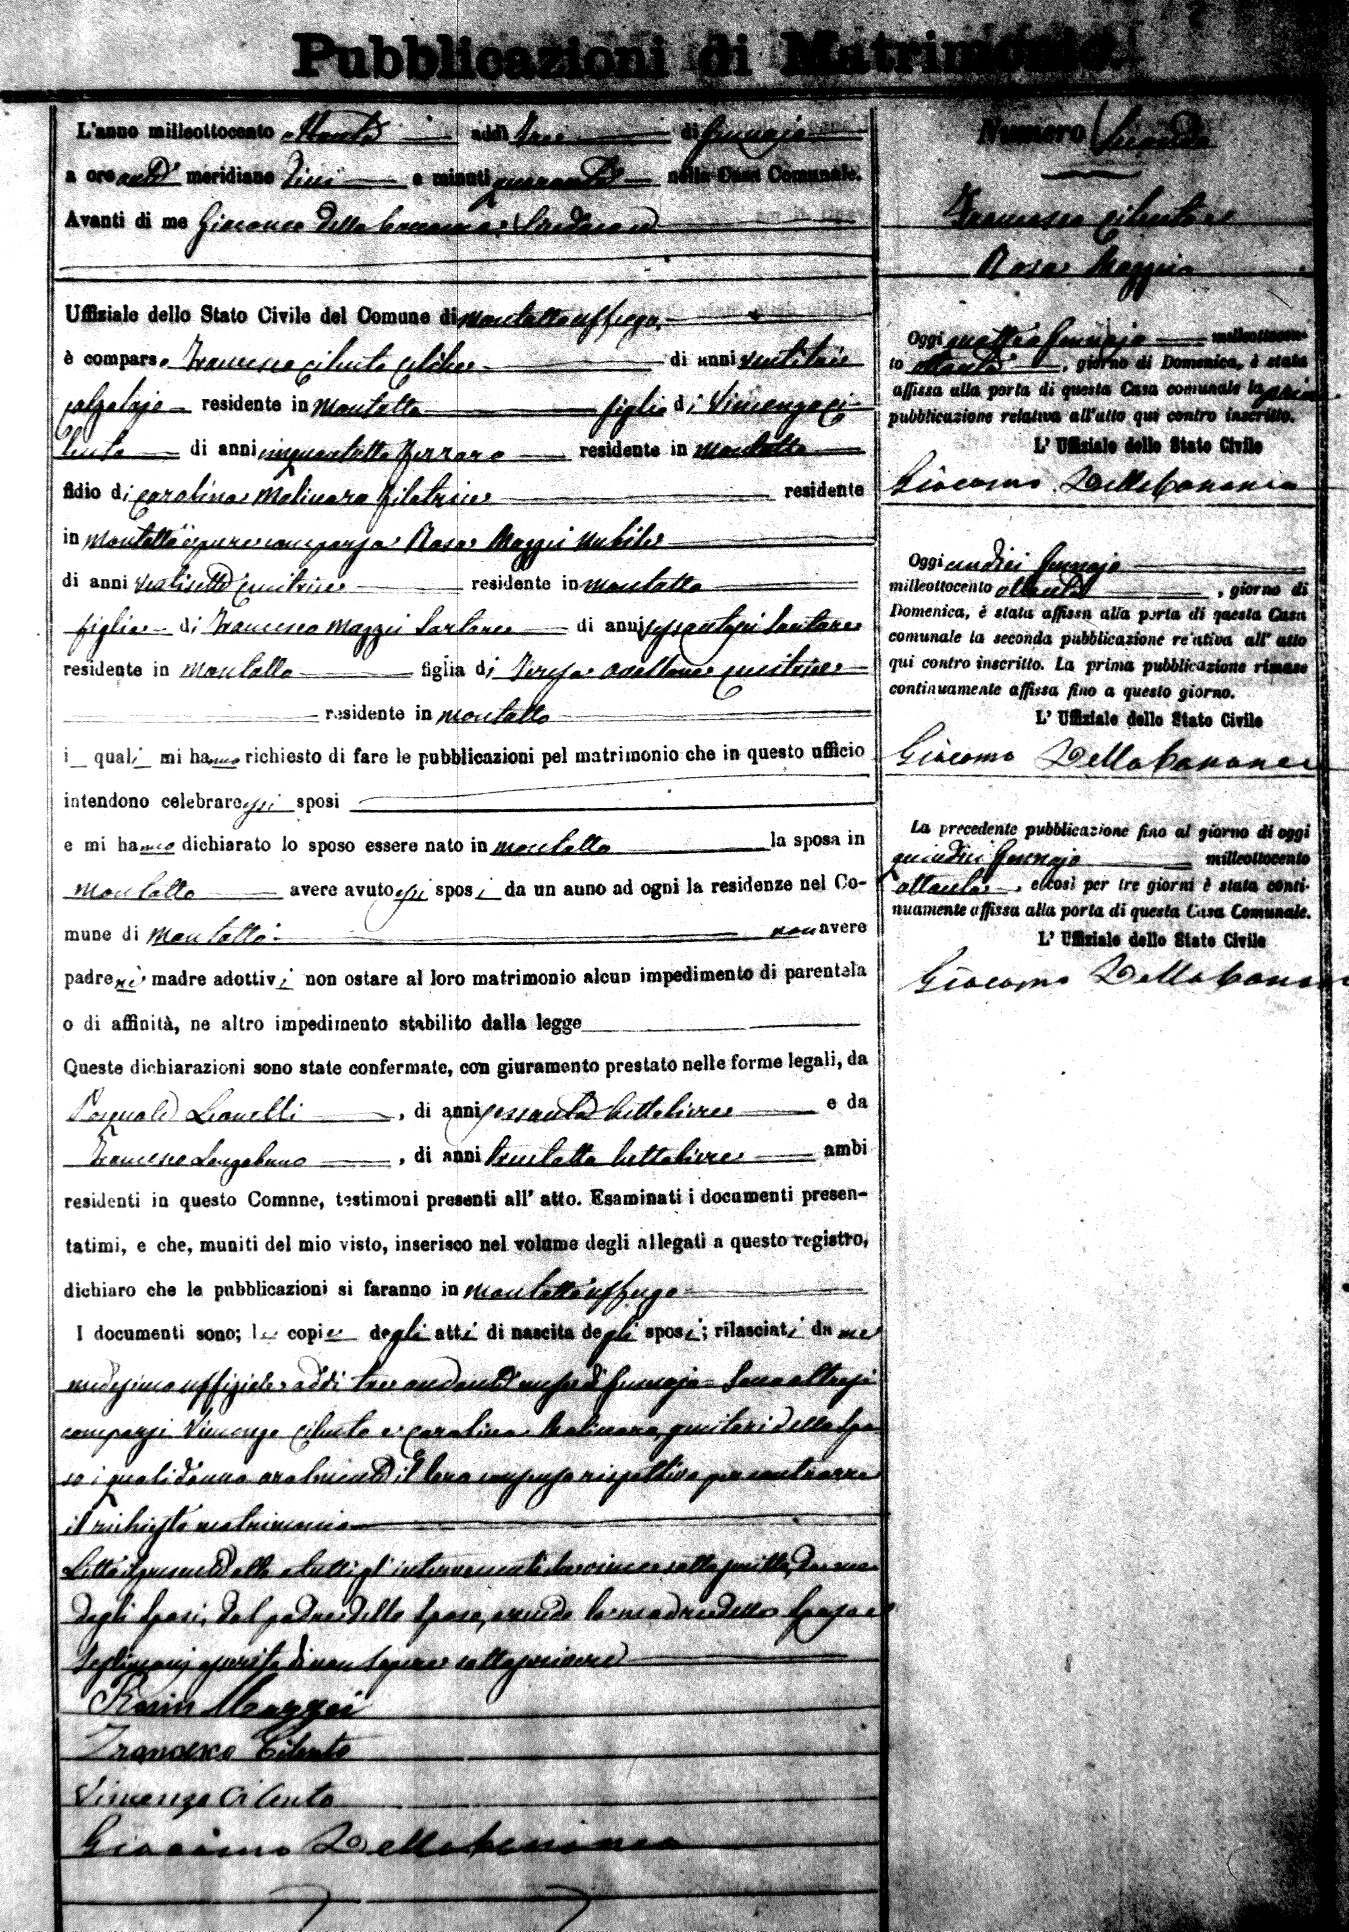 Pubblicazioni di Matrimonio.
L'anno milleottocento ottanta addì tre di Gennajo
a ore anti meridiane dieci e minuti quaranta nella Casa Comunale.
Avanti di me Giacomo Della Cananea Sindaco
Uffiziale dello Stato Civile del Comune di Montalto Uffugo
è comparso Francesco Cilento celibe di anni ventitrè
calzolajo residente in Montalto figlio di Vincenzo Ci
lento di anni cinquantotto ferraro residente in Montalto
fidio di Carolina Molinaro filatrice residente
in Montalto è pure comparsa Rosa Mazzei nubile
di anni ventisette cucitrice residente in Montalto
figlia di Francesco Mazzei Sartore di anni sessantasei Santore
residente in Montalto figlia di Teresa Avellone cucitrice
residente in Montalto
i quali mi hanno richiesto di fare le pubblicazioni pel matrimonio che in questo ufficio
intendono celebrare essi sposi
e mi hanno dichiarato lo sposo essere nato in Montalto la sposa in
Montalto avere avuto essi sposi da un anno ad ogni la residenze nel Co-
mune di Montalto non avere
padre nè madre adottivi non ostare al loro matrimonio alcun impedimento di parentela
o di affinità, ne altro impedimento stabilito dalla legge
Queste dichiarazioni sono state confermate, con giuramento prestato nelle forme legali, da
Pasquale Leonelli, di anni sessanta bettoliere e da
Francesco Longobuco, di anni trentotto bettoliere ambi
residenti in questo Comnne, testimoni presenti all' atto. Esaminati i documenti presen-
tatimi, e che, muniti del mio visto, inserisco nel volume degli allegati a questo registro,
dichiaro che le pubblicazioni si faranno in Montalto Uffugo
I documenti sono; le copie degli atti di nascita degli sposi; rilasciati da me
medesimo uffiziale addì tre andante mese di Gennajo Sono altresì
comparsi Vincenzo Cilento e Carolina Molinaro, genitori dello spo
so i quali danno oralmente il loro consenso rispettivo per contrarre
il richiesto matrimonio
Letto il presente atto a tutti gl'intervenuti lo viene sottoscritto, da me
dagli Sposi, dal padre dello Sposo, avendo la madre dello Sposo e
testimonj asserito di non sapere sottoscrivere
Rosin Mazzei
Francesco Cilento
Vincenzo Cilento
Giacomo Della Cananea
Numero Secondo
Francesco Cilento e
Rosa Mazzei
Oggi quattro Gennajo milleottocen-
to ottanta, giorno di Domenica, è stata
affissa alla porta di questa Casa comunale la prima
pubblicazione relativa all'atto qui contro inscritto.
L' Uffiziale dello Stato Civile
Giacomo Della Cananea
Oggi undici Gennajo
milleottocento ottanta, giorno di
Domenica, è stata affissa alla porta di questa Casa
comunale la seconda pubblicazione re'ativa all' atto
qui contro inscritto. La prima pubblicazione rimase
continuamente affissa fino a questo giorno.
L' Uffiziale dello Stato Civile
Giacomo Della Cananea
La precedente pubblicazione fino al giorno di oggi
quindici Gennajo milleottocento
ottanta, e così per tre giorni è stata conti-
nuamente affissa alla porta di questa Casa Comunale.
L' Uffiziale dello Stato Civile
Giacomo Della Canan